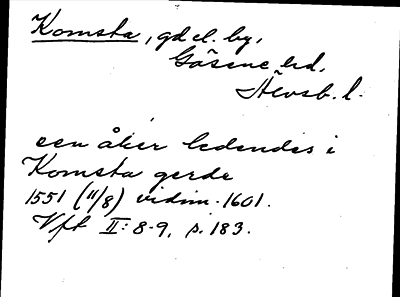 Komsta, gd el. by,
Gäsene hd,
Älvsb. l.
een åker liedendes i
Komsta gerde
1551 (11/8) vidim. 1601.
Vft II: 8-9, s. 183.